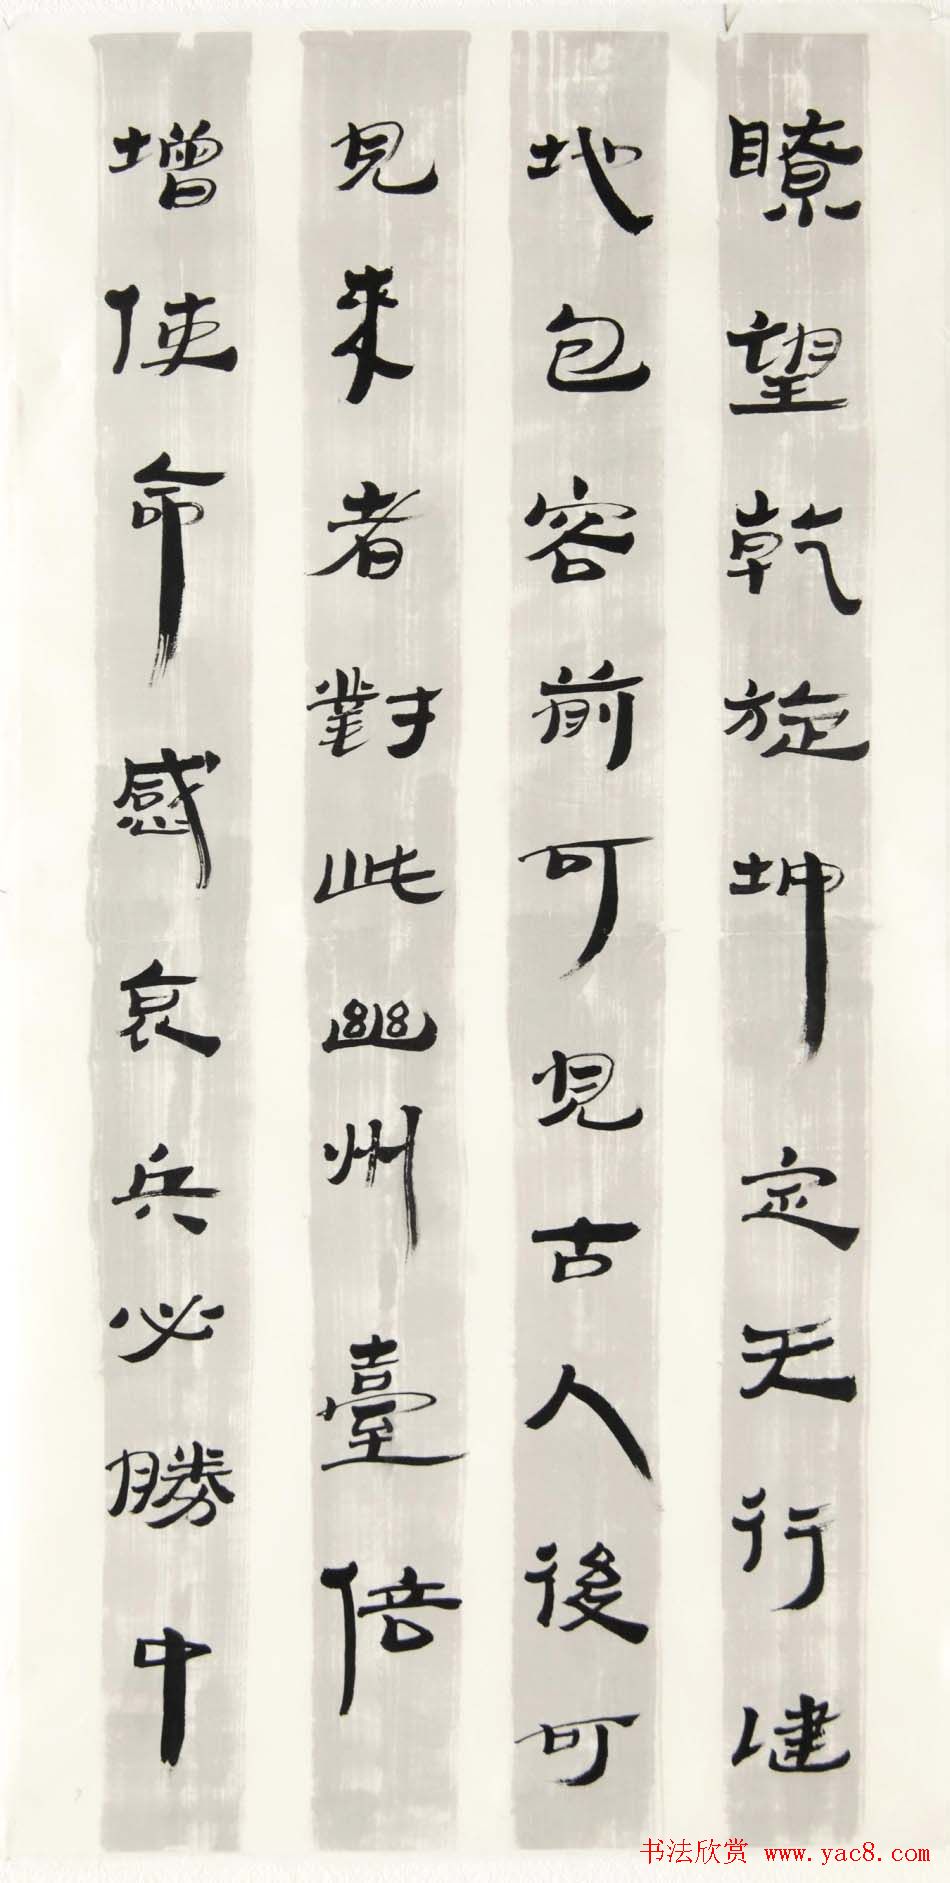 瞭望乾旋坤定天行健
地包容前可見古人後可
見来者對此幽州臺倍
增使命感哀兵必勝中
书法欣赏 www.yac8.com